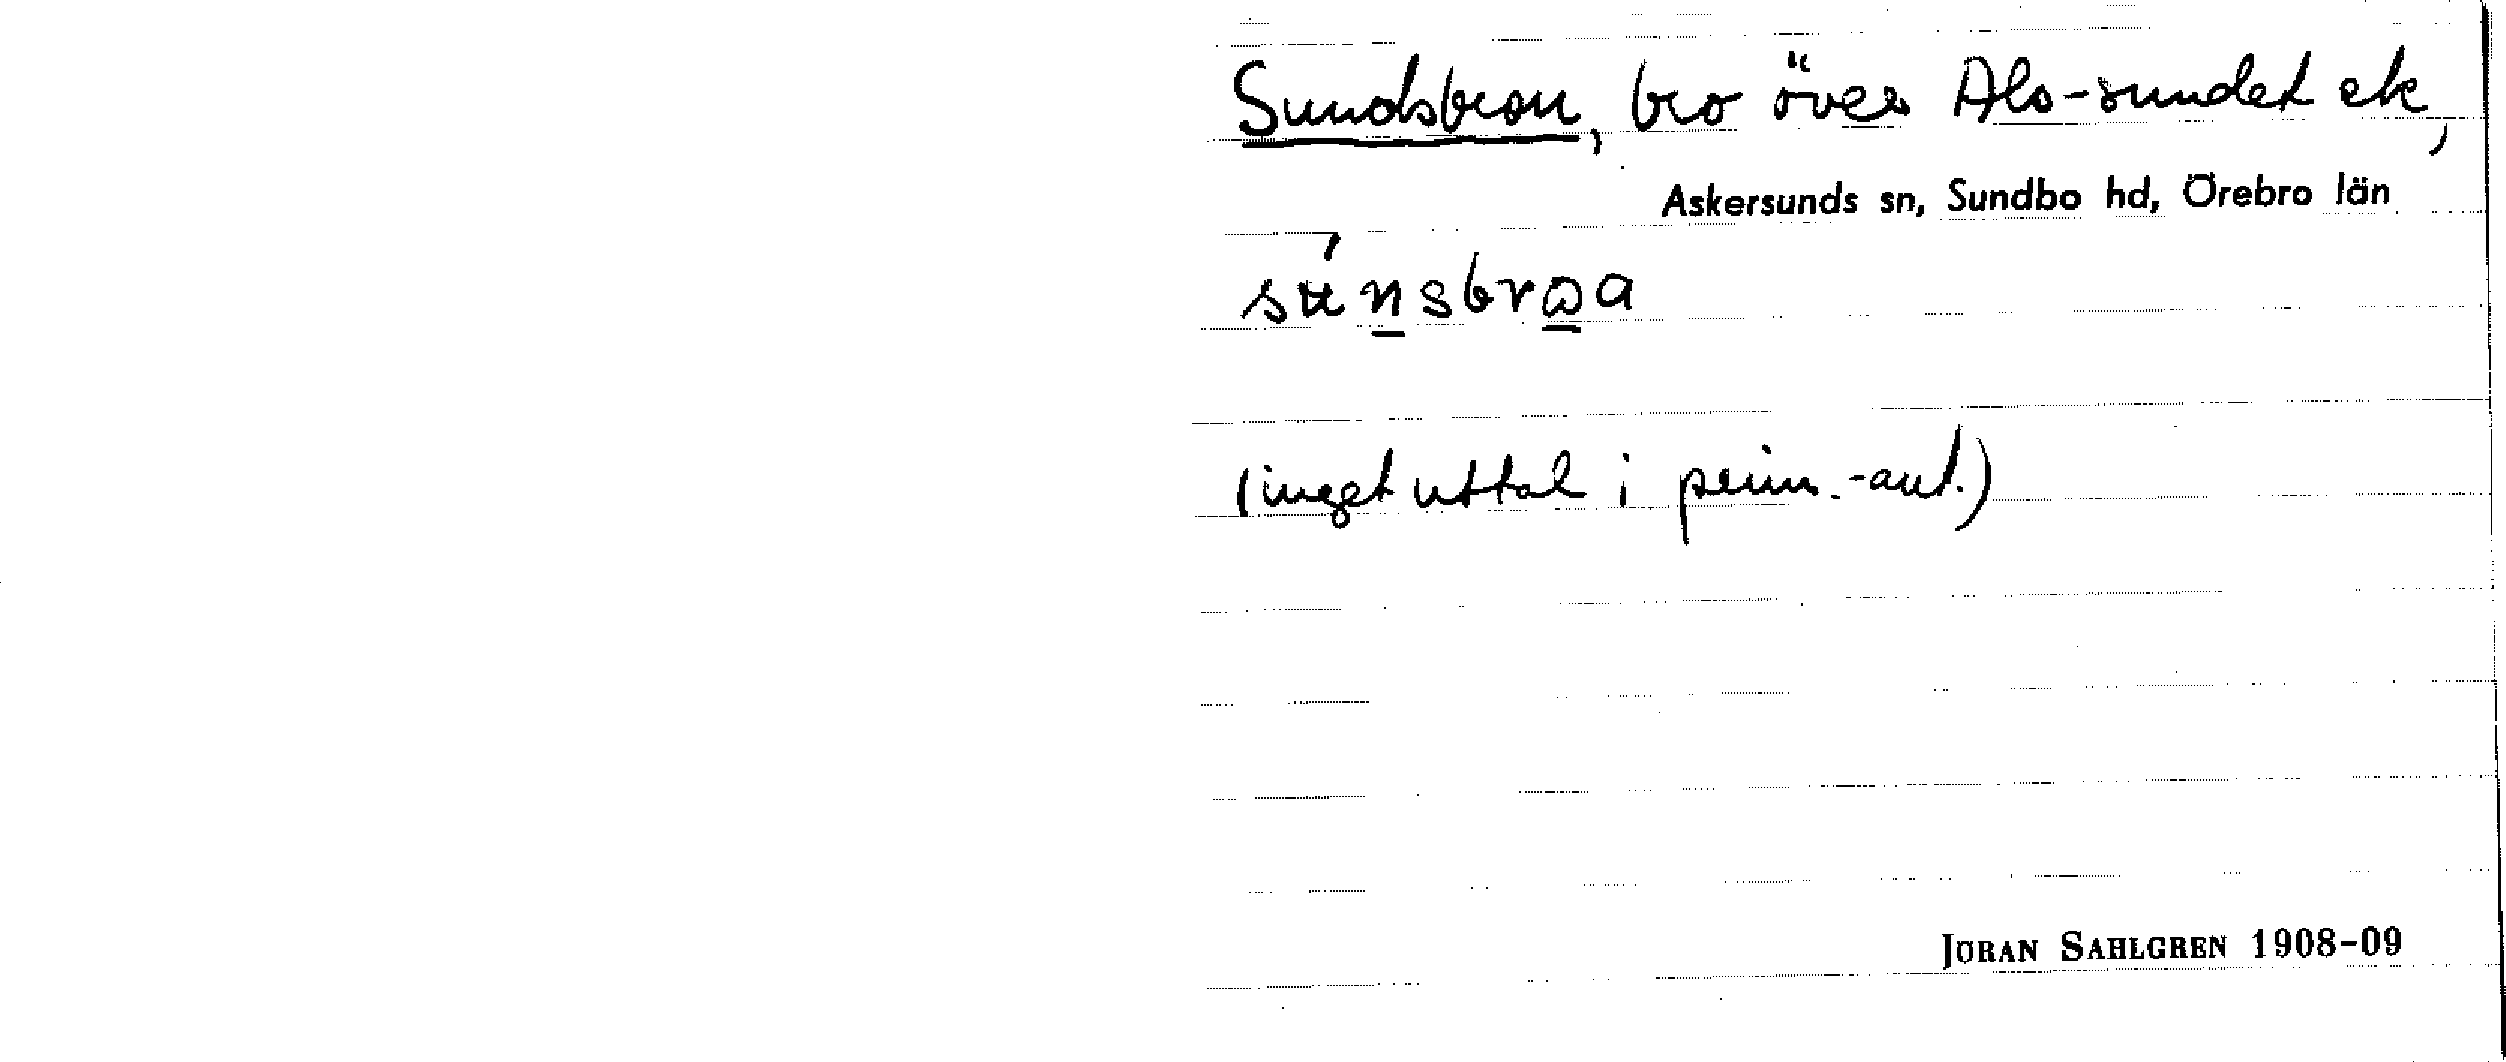 Sundsbron, bro över Als-sundet ek,
Askersunds sn, Sundbo hd, Örebro län
(inget uttal i prim.-ant.)
JÖRAN SAHLGREN 1908-09